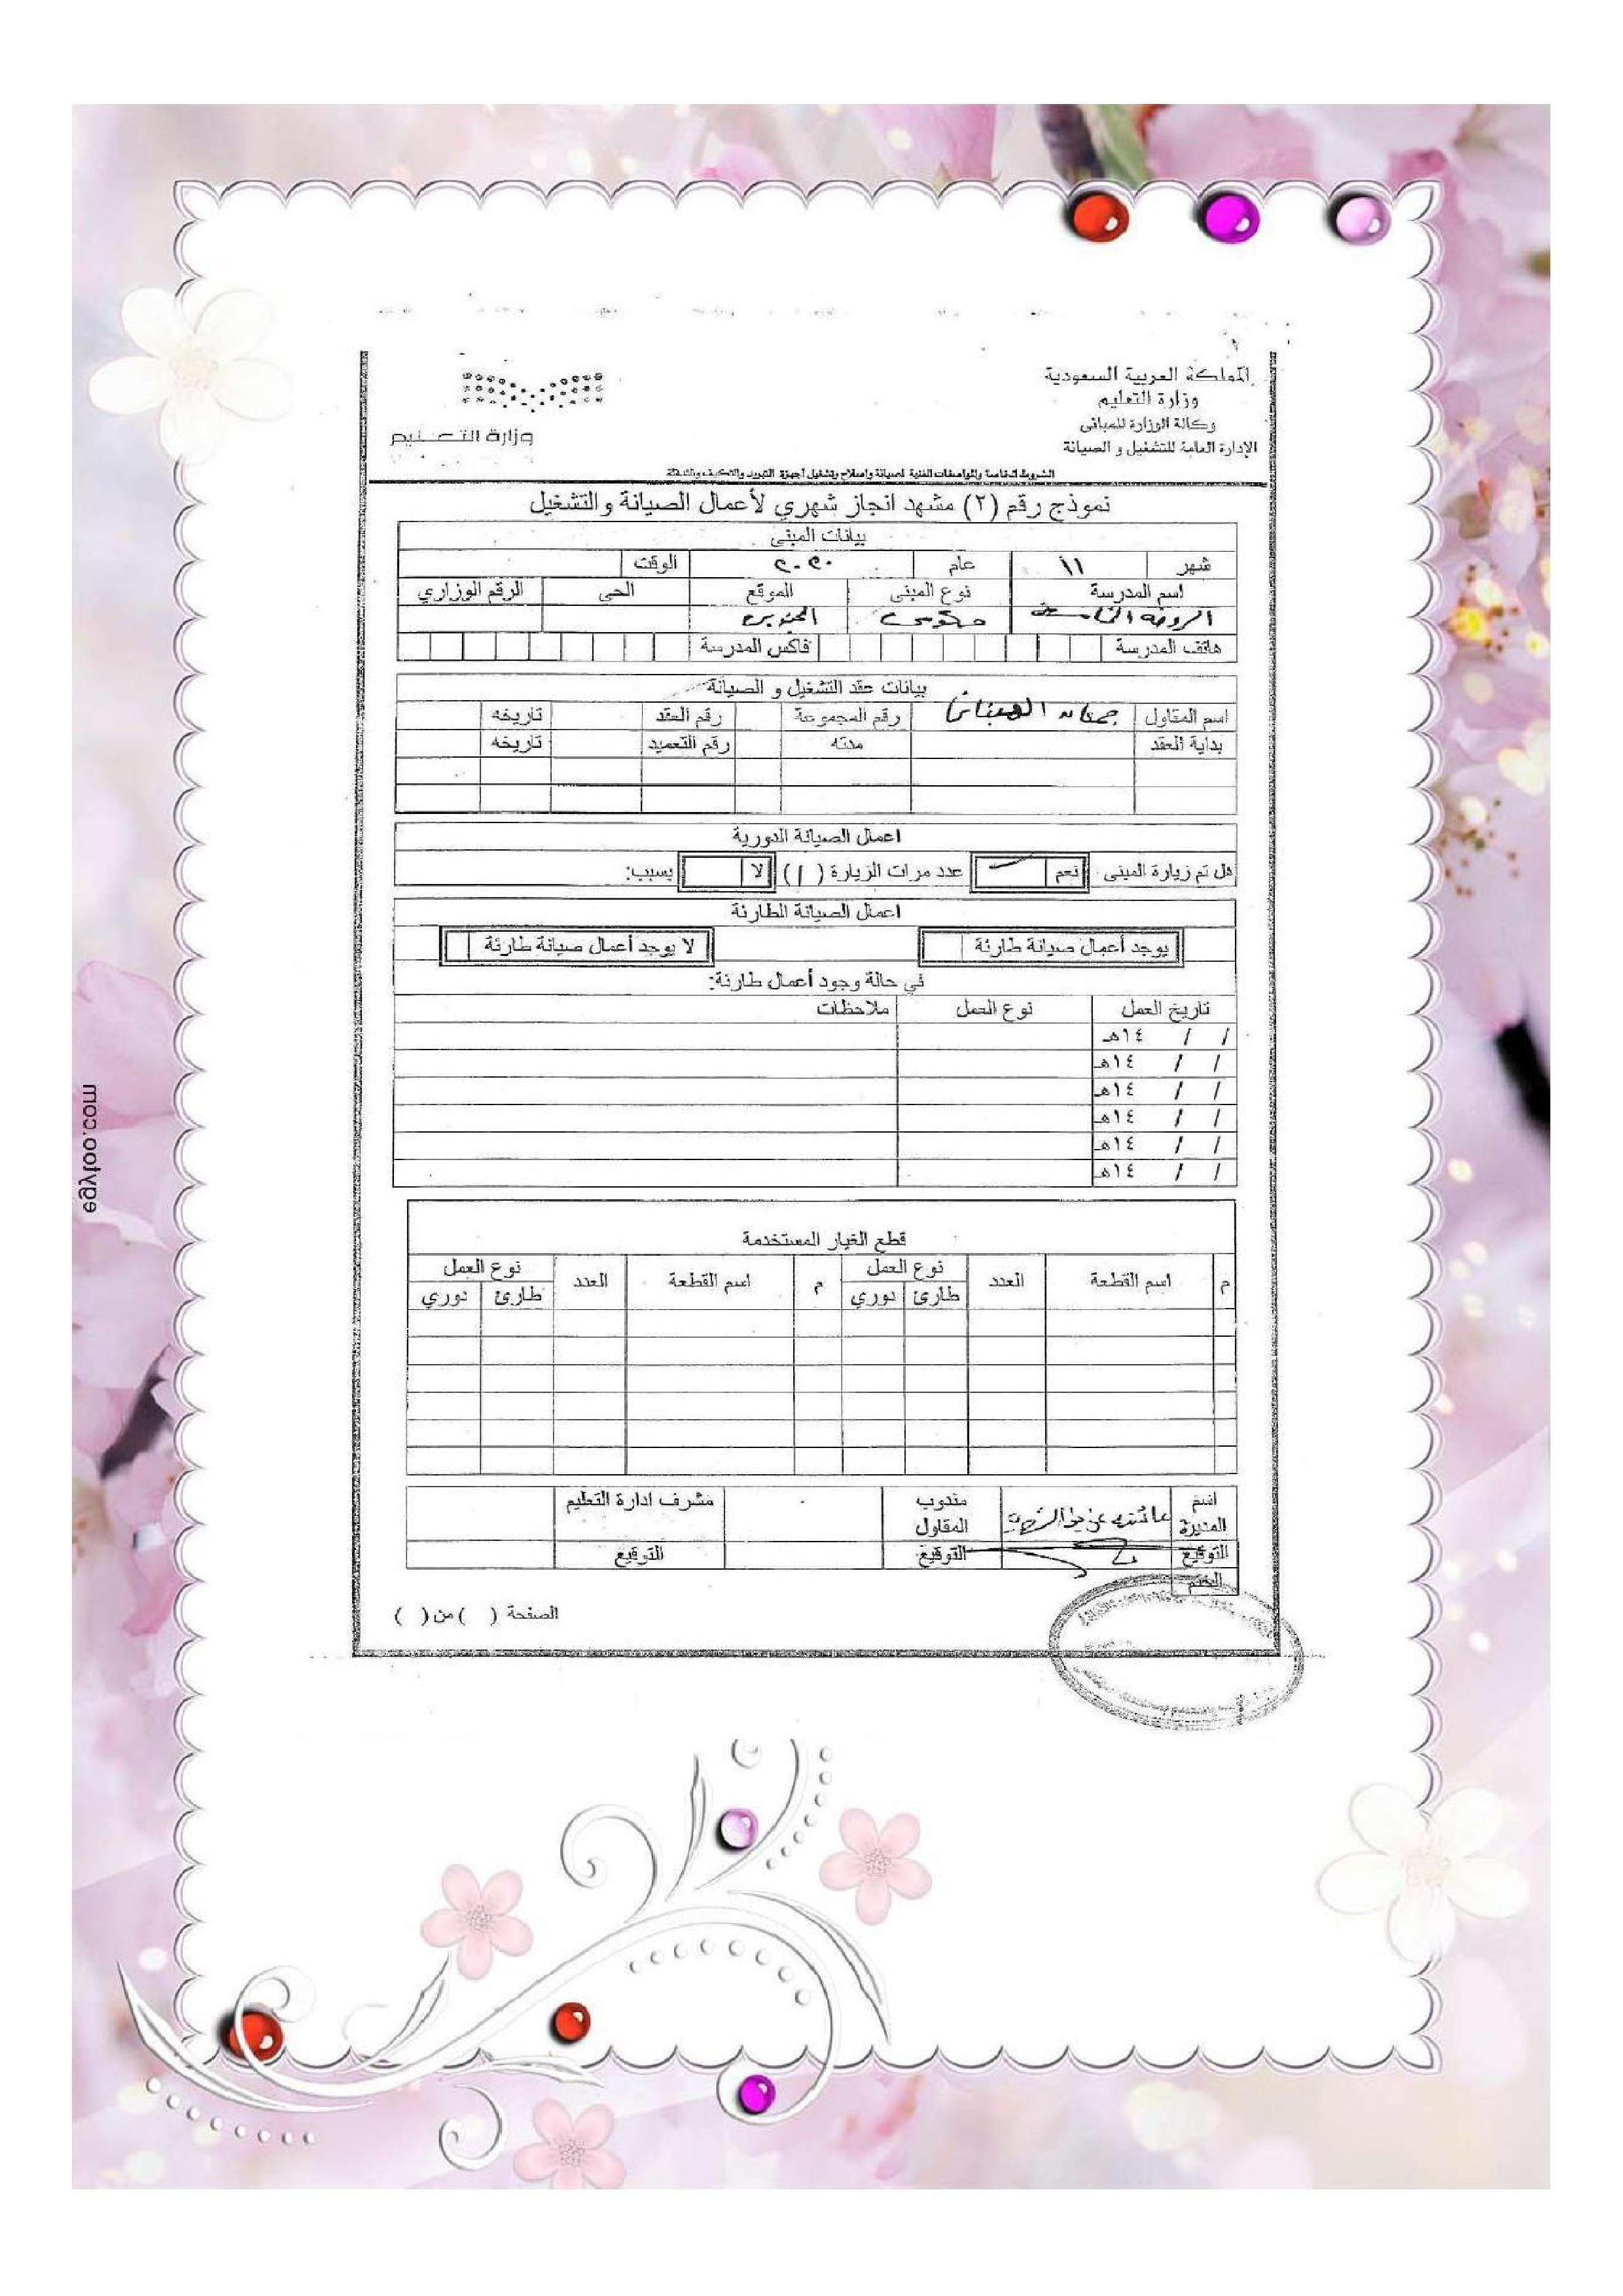 المملكة العربية السعودية
وزارة التعليم
وكالة الوزارة للمباني
الإدارة العامة للتشغيل و الصيانة
وزارة التعـليم
الشروط الخاصة والمواصفات الفنية لصيانة وإصلاح وتشغيل أجهزة التبريد والتكييف
نموذج رقم (٢) مشهد انجاز شهري لأعمال الصيانة والتشغيل
بيانات المبنى
شهر ١١ عام ٢٠٢٠ الوقت
اسم المدرسة نوع المبنى الموقع الحى الرقم الوزاري
الروضة حكومي
هاتف المدرسة فاكس المدرسة
بيانات عقد التشغيل و الصيانة
اسم المقاول رقم المجموعة رقم العقد تاريخه
بداية العقد مدته رقم التعميد تاريخه
اعمال الصيانة الدورية
هل تم زيارة المبنى نعم عدد مرات الزيارة (١) لا بسبب:
اعمال الصيانة الطارئة
يوجد أعمال صيانة طارئة لا يوجد أعمال صيانة طارئة
في حالة وجود أعمال طارئة:
تاريخ العمل نوع العمل ملاحظات
/ / ١٤هـ
/ / ١٤هـ
/ / ١٤هـ
/ / ١٤هـ
/ / ١٤هـ
/ / ١٤هـ
قطع الغيار المستخدمة
م اسم القطعة العدد نوع العمل م اسم القطعة العدد نوع العمل
طارئ دوري طارئ دوري
اسم المديرة مندوب المقاول مشرف ادارة التعليم
التوقيع التوقيع التوقيع
الختم
الصفحة ( ) من ( )
egyfoo.com